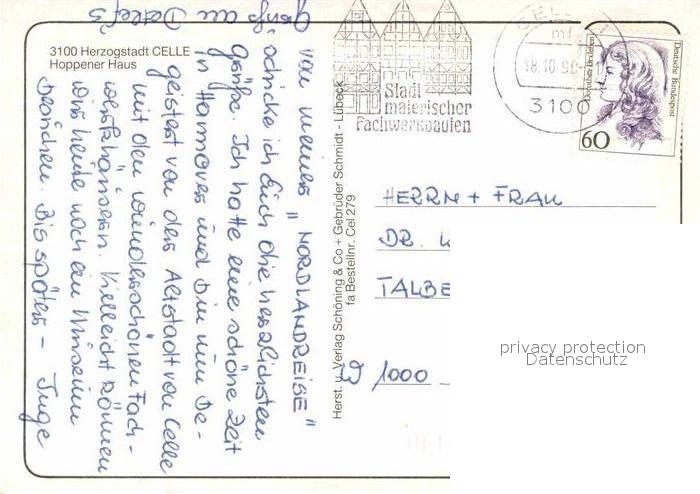 3100 Herzogstadt CELLE
Hoppener Haus
von meiner "NORDLANDREISE"
schicke ich Euch die herzlichsten
Grüße. Ich hatte eine schöne Zeit
in Hannover und bin nun be-
geistert von der Altstadt von Celle
mit den wunderschönen Fach-
werkhäusern. Vielleicht können
wir heute noch ein Museum
besuchen. Bis später - Inge
Herst. u. Verlag Schöning & Co + Gebrüder Schmidt - Lübeck
fa Bestellnr. Cel 279
Stadt
malerischer
Fachwerkbauten
CELLE
mf
18.10.90
3100
Deutsche Bundespost
60
HERRN + FRAU
DR.
TALBE
W 1000
privacy protection
Datenschutz